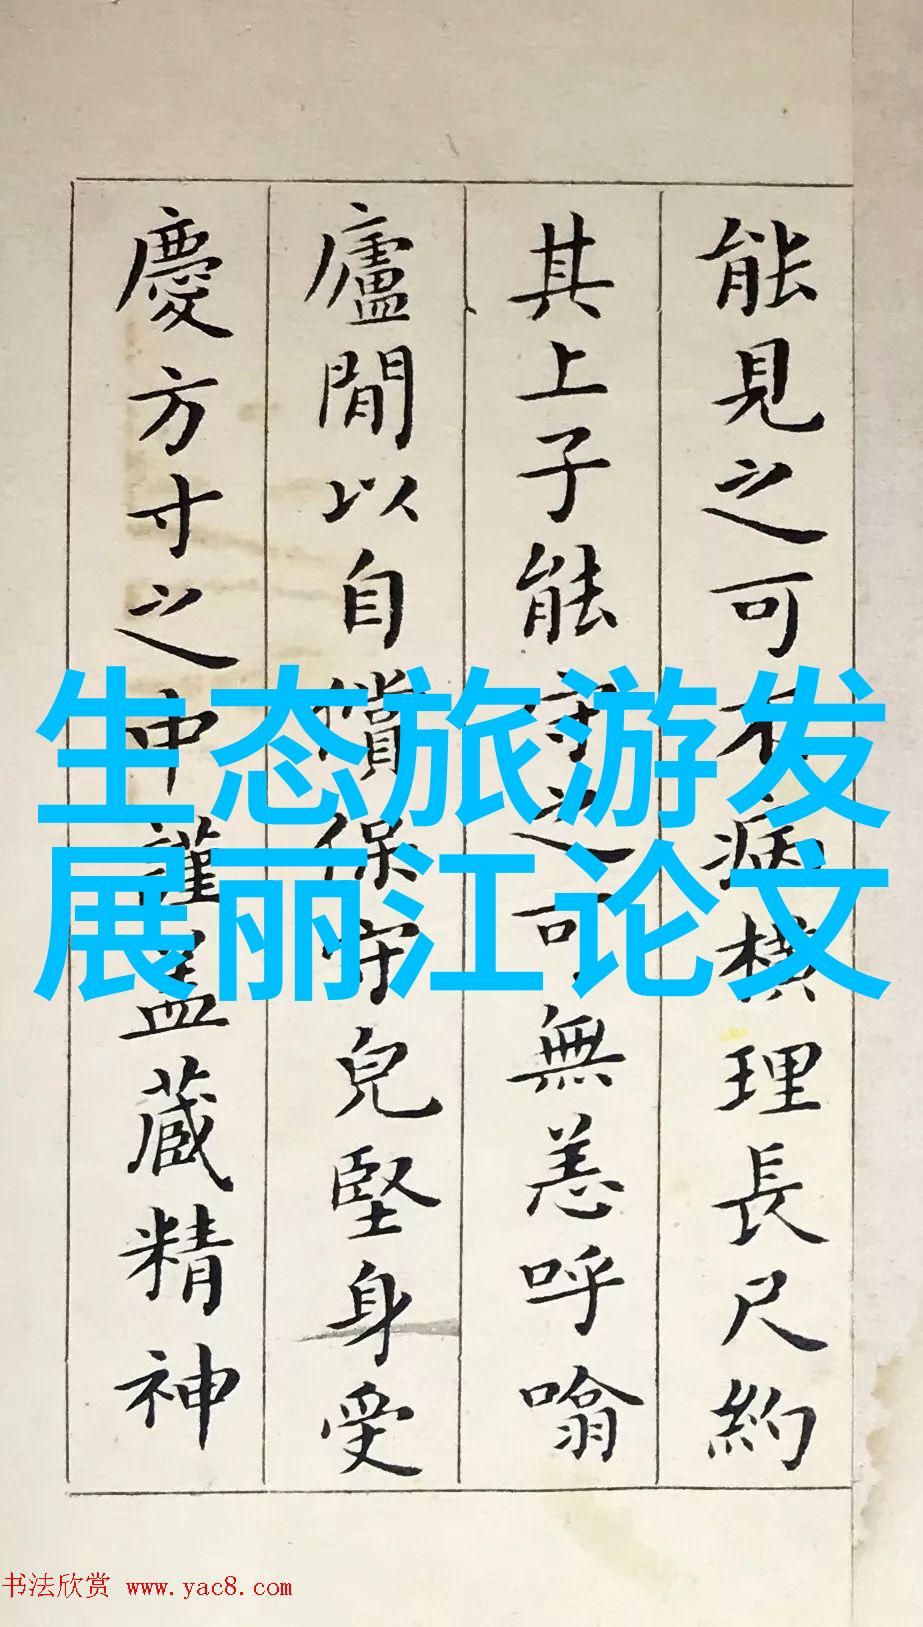 能見之可不病橫理長尺約
其上子能守之可無恙呼噏
廬閒以自償保守兒堅身受
慶方寸之中謹蓋藏精神
生态旅游发
展丽江论文
书法欣赏 www.yac8.com